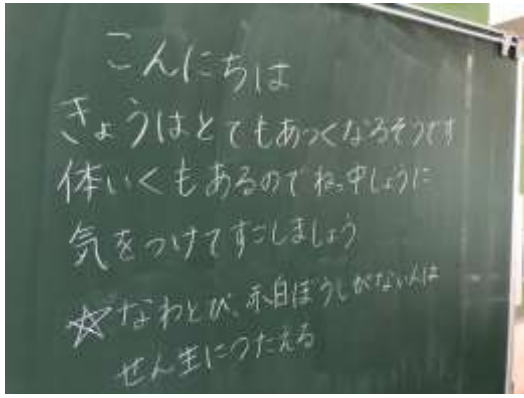 こんにちは
きょうはとてもあつくなるそうです
体いくもあるのでねっ中しょうに
気をつけてすごしましょう
☆なわとび、赤白ぼうしがない人は
せん生につたえる